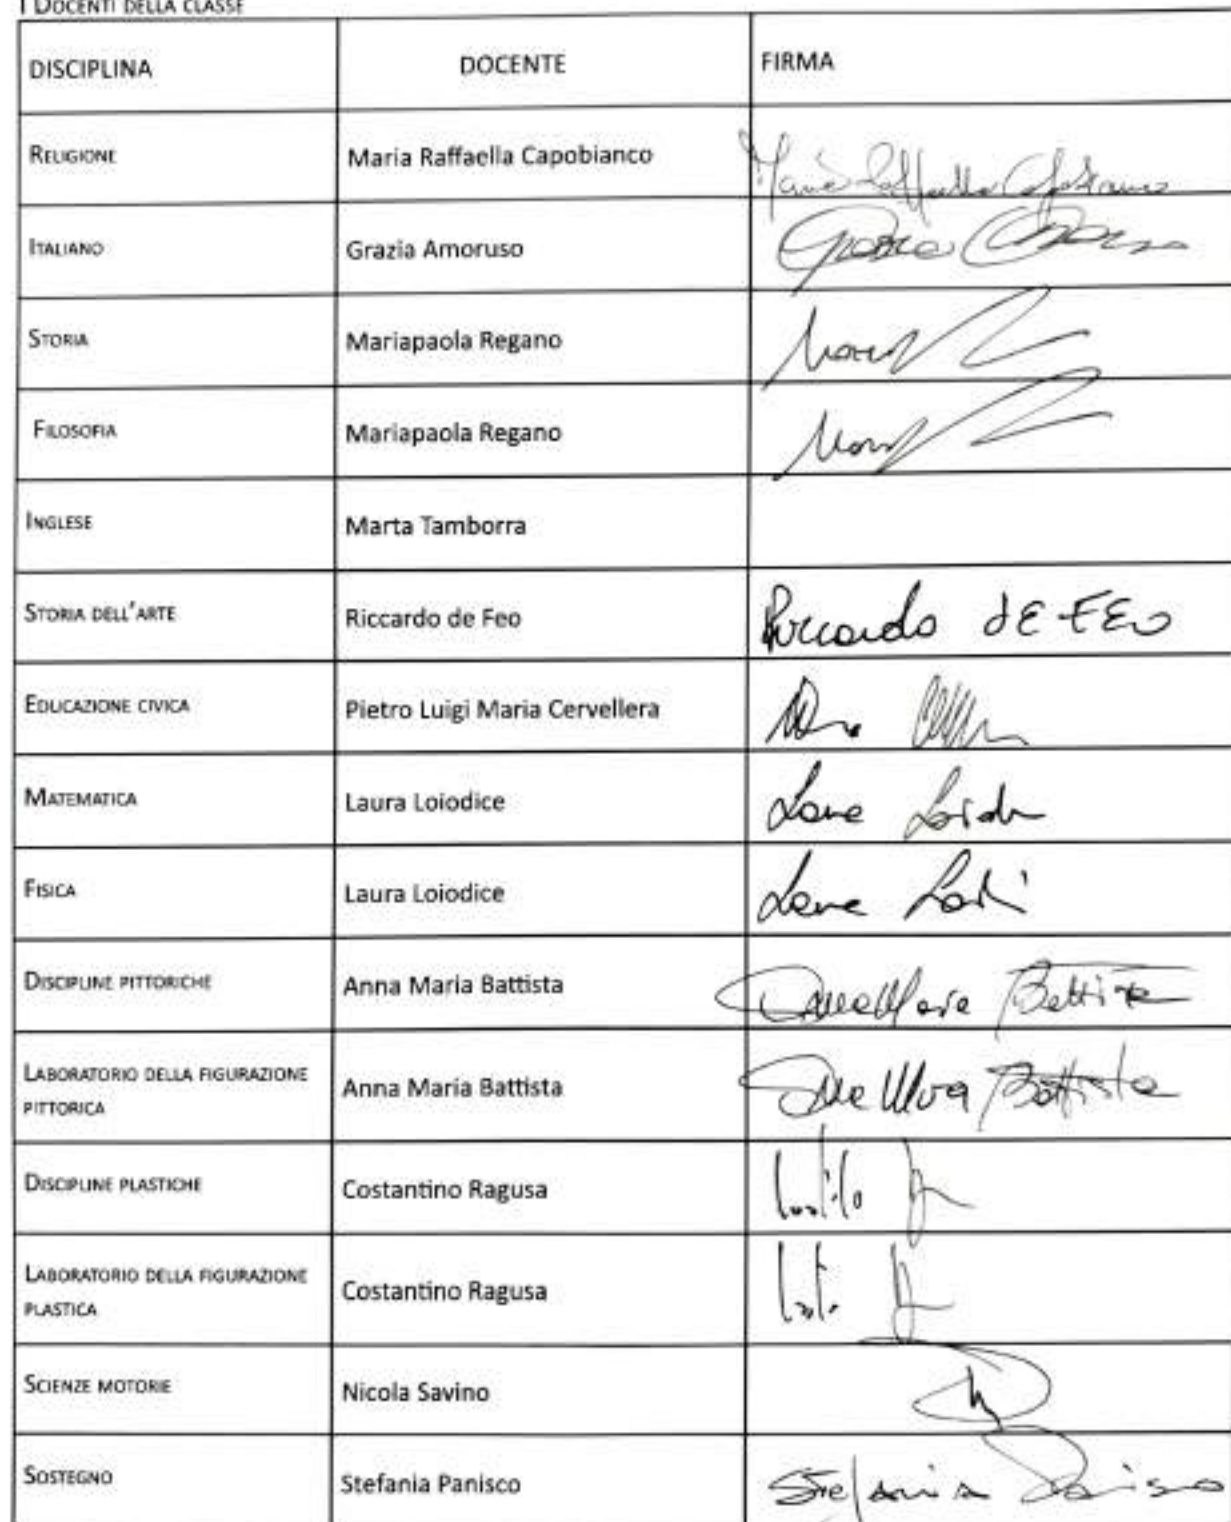 I DOCENTI DELLA CLASSE
DISCIPLINA DOCENTE FIRMA
RELIGIONE Maria Raffaella Capobianco Maria Raffaella Capobianco
ITALIANO Grazia Amoruso Grazia
STORIA Mariapaola Regano
FILOSOFIA Mariapaola Regano
INGLESE Marta Tamborra
STORIA DELL'ARTE Riccardo de Feo Riccardo dE FEo
EDUCAZIONE CIVICA Pietro Luigi Maria Cervellera
MATEMATICA Laura Loiodice
FISICA Laura Loiodice
DISCIPLINE PITTORICHE Anna Maria Battista Anna Maria Battista
LABORATORIO DELLA FIGURAZIONE
PITTORICA Anna Maria Battista Anna Maria Battista
DISCIPLINE PLASTICHE Costantino Ragusa
LABORATORIO DELLA FIGURAZIONE
PLASTICA Costantino Ragusa
SCIENZE MOTORIE Nicola Savino
SOSTEGNO Stefania Panisco Stefania Panisco